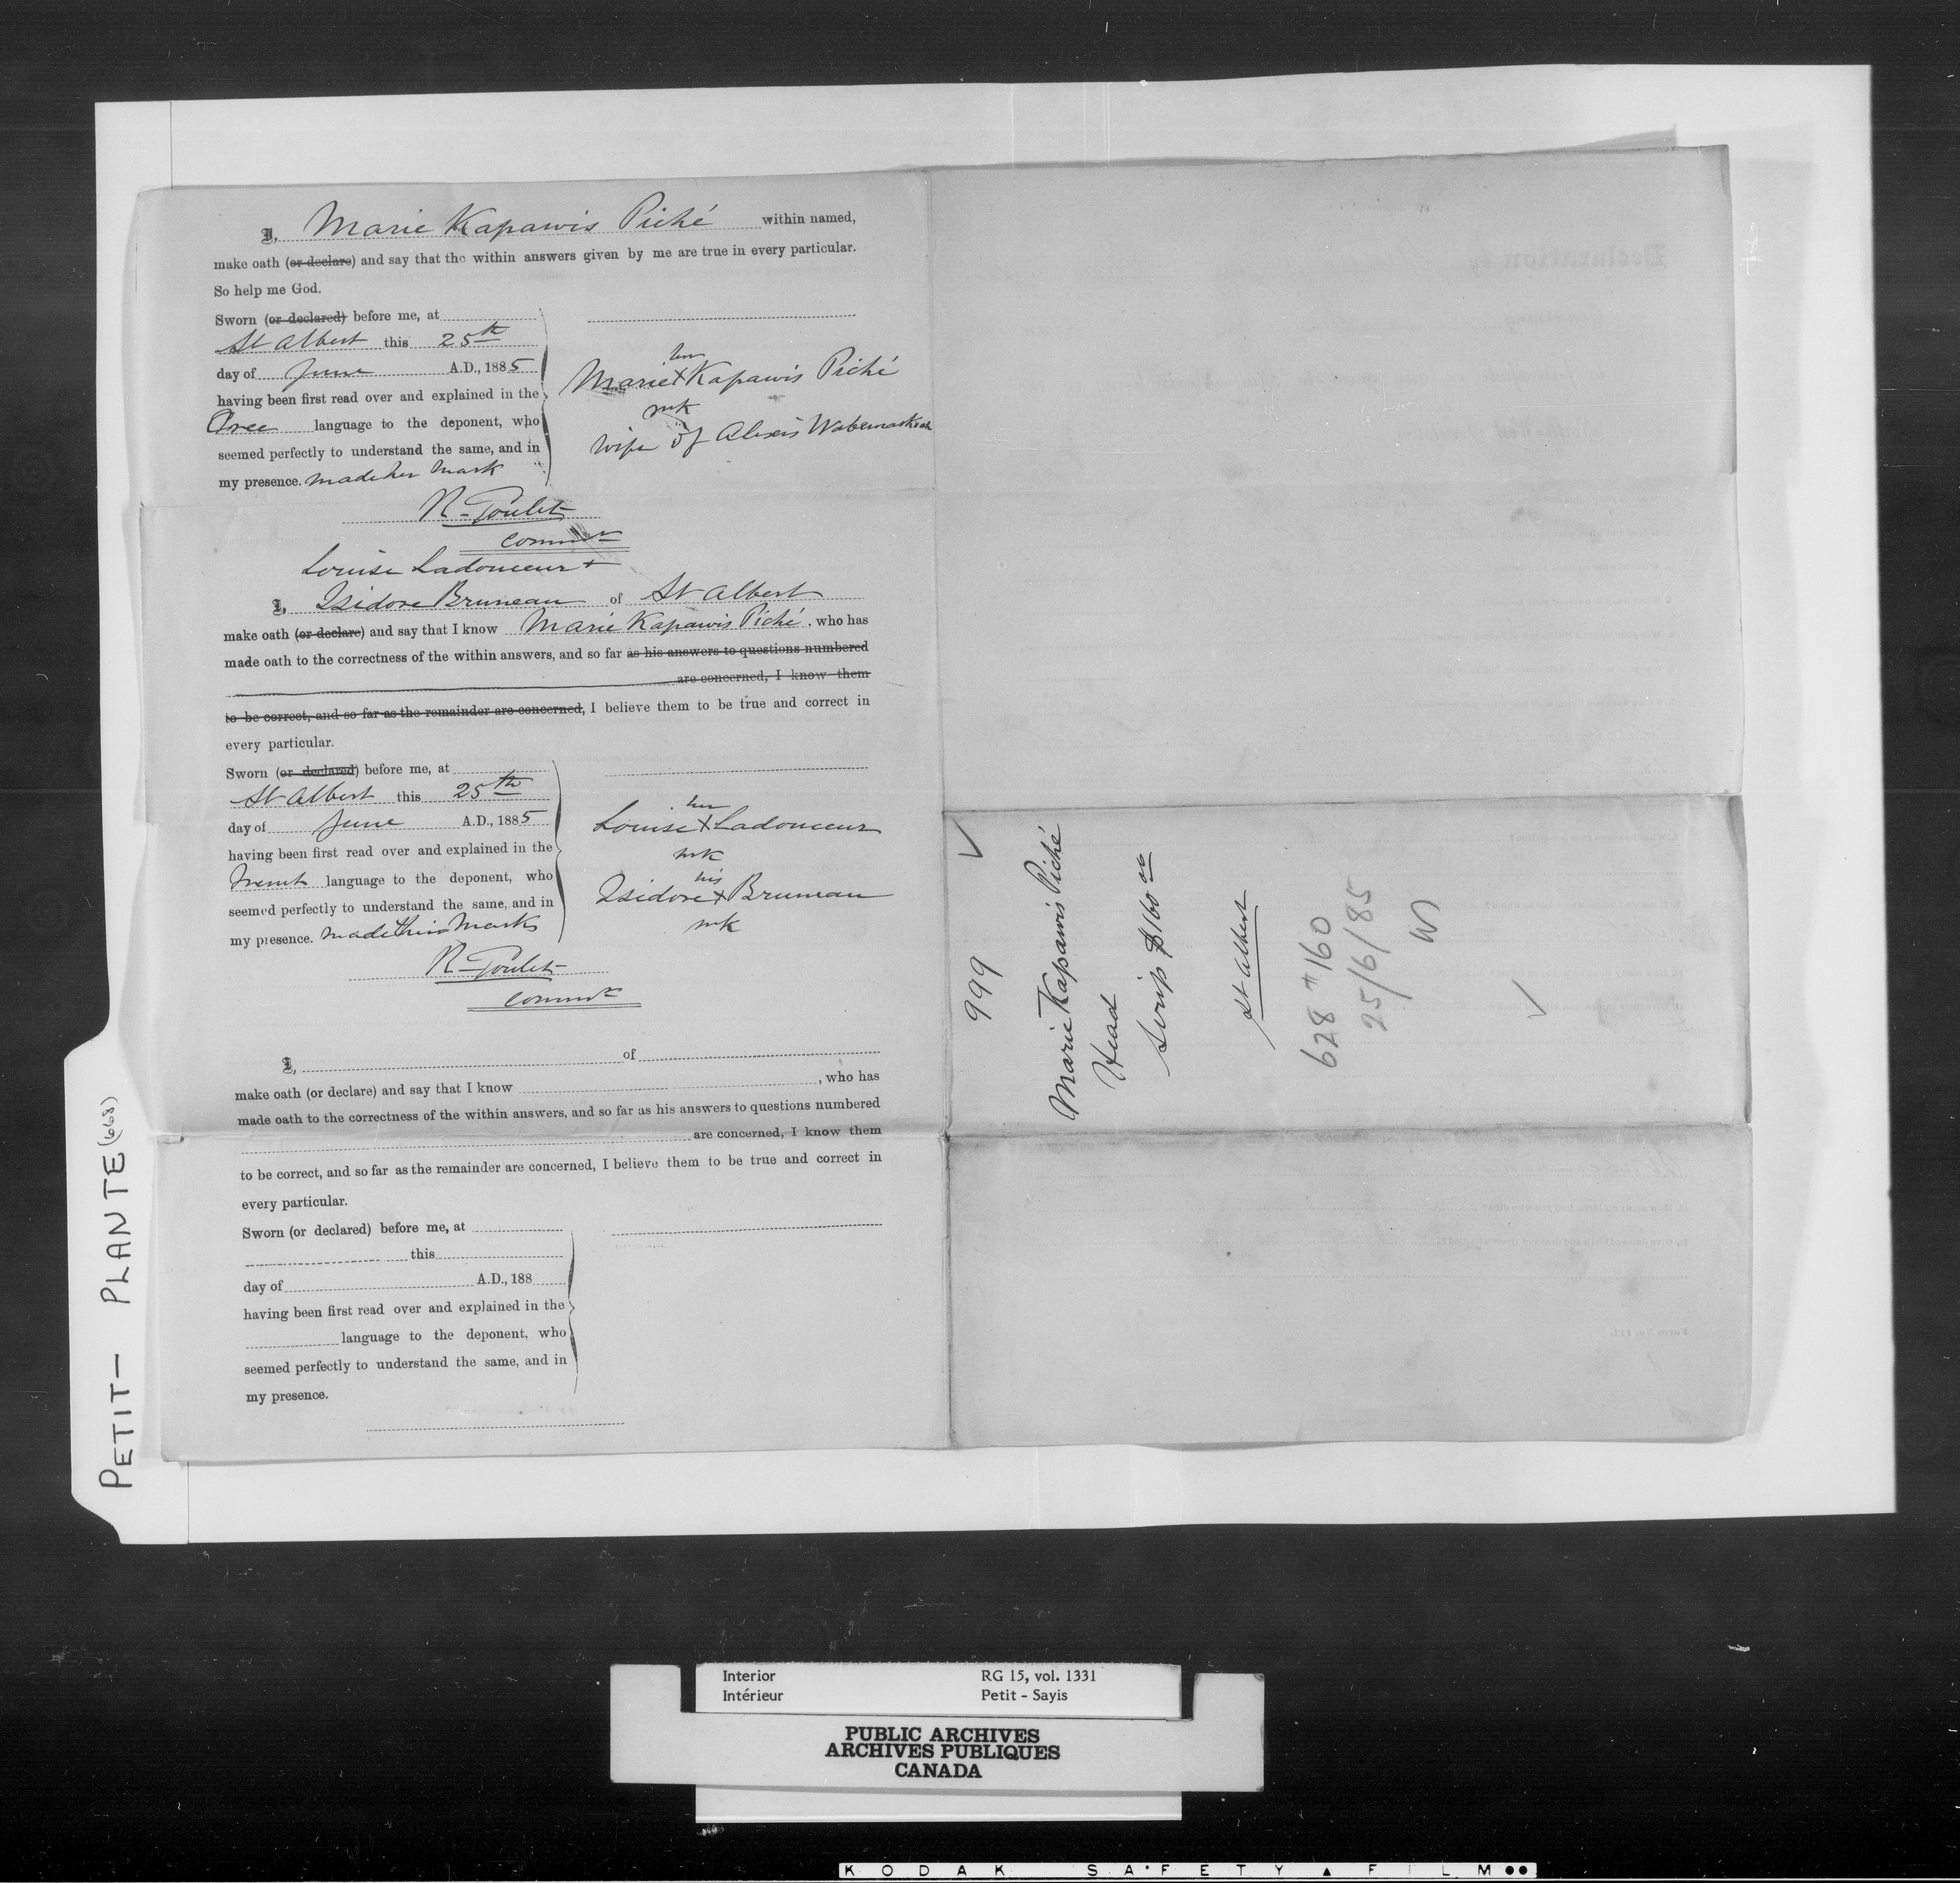 I, Marie Kapawis Piché within named,
make oath (or declare) and say that the within answers given by me are true in every particular.
So help me God.
Sworn (or declared) before me, at
St Albert this 25th
day of June A.D., 1885
having been first read over and explained in the
Cree language to the deponent, who
seemed perfectly to understand the same, and in
my presence. made her mark
her
Marie X Kapawis Piché
mk
wife of Alexis
R. Goulet
Commr
Louise Ladouceur +
I, Isidore Bruneau of St Albert
make oath (or declare) and say that I know Marie Kapawis Piché, who has
made oath to the correctness of the within answers, and so far as his answers to questions numbered
are concerned, I know them
to be correct, and so far as the remainder are concerned, I believe them to be true and correct in
every particular.
Sworn (or declared) before me, at
St Albert this 25th
day of June A.D., 1885
having been first read over and explained in the
French language to the deponent, who
seemed perfectly to understand the same, and in
my presence. made their marks
her
Louise X Ladouceur
mk
his
Isidore X Bruneau
mk
R. Goulet
Commr
I, of
make oath (or declare) and say that I know , who has
made oath to the correctness of the within answers, and so far as his answers to questions numbered
are concerned, I know them
to be correct, and so far as the remainder are concerned, I believe them to be true and correct in
every particular.
Sworn (or declared) before me, at
this
day of A.D., 188
having been first read over and explained in the
language to the deponent, who
seemed perfectly to understand the same, and in
my presence.
999
Marie Kapawis Piché
Head
Scrip $160.00
St Albert
628 # 160
25/6/85
PETIT- PLANTE (668)
Interior RG 15, vol. 1331
Intérieur Petit - Sayis
PUBLIC ARCHIVES
ARCHIVES PUBLIQUES
CANADA
KODAK SAFETY FILM